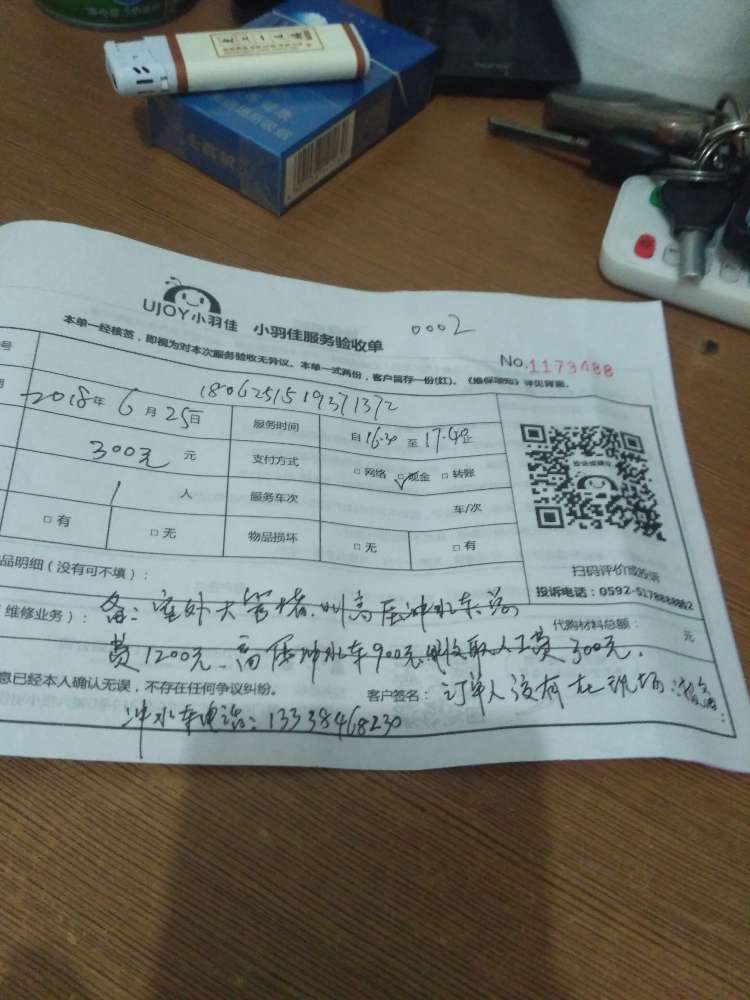 UJOY小羽佳 小羽佳服务验收单 0002
本单一经核签，即视为对本次服务验收无异议。本单一式两份，客户留存一份(红)。《维保须知》详见背面。
No.1173488
号 1806251519371372
期 2018年6月25日 服务时间 自16:30至17:40止
300元 元 支付方式 □网络 □现金 □转账
1 人 服务车次 车/次
□有 □无 物品损坏 □无 □有
扫码评价或投诉
品明细（没有可不填）：
投诉电话：0592-5178888
维修业务）： 备：室外大管堵，叫高压冲水车总
代购材料总额： 元
费1200元，高压冲水车900元，收取人工费300元。
息已经本人确认无误，不存在任何争议纠纷。 客户签名： 订单人没有在现场
冲水车电话：13338468230